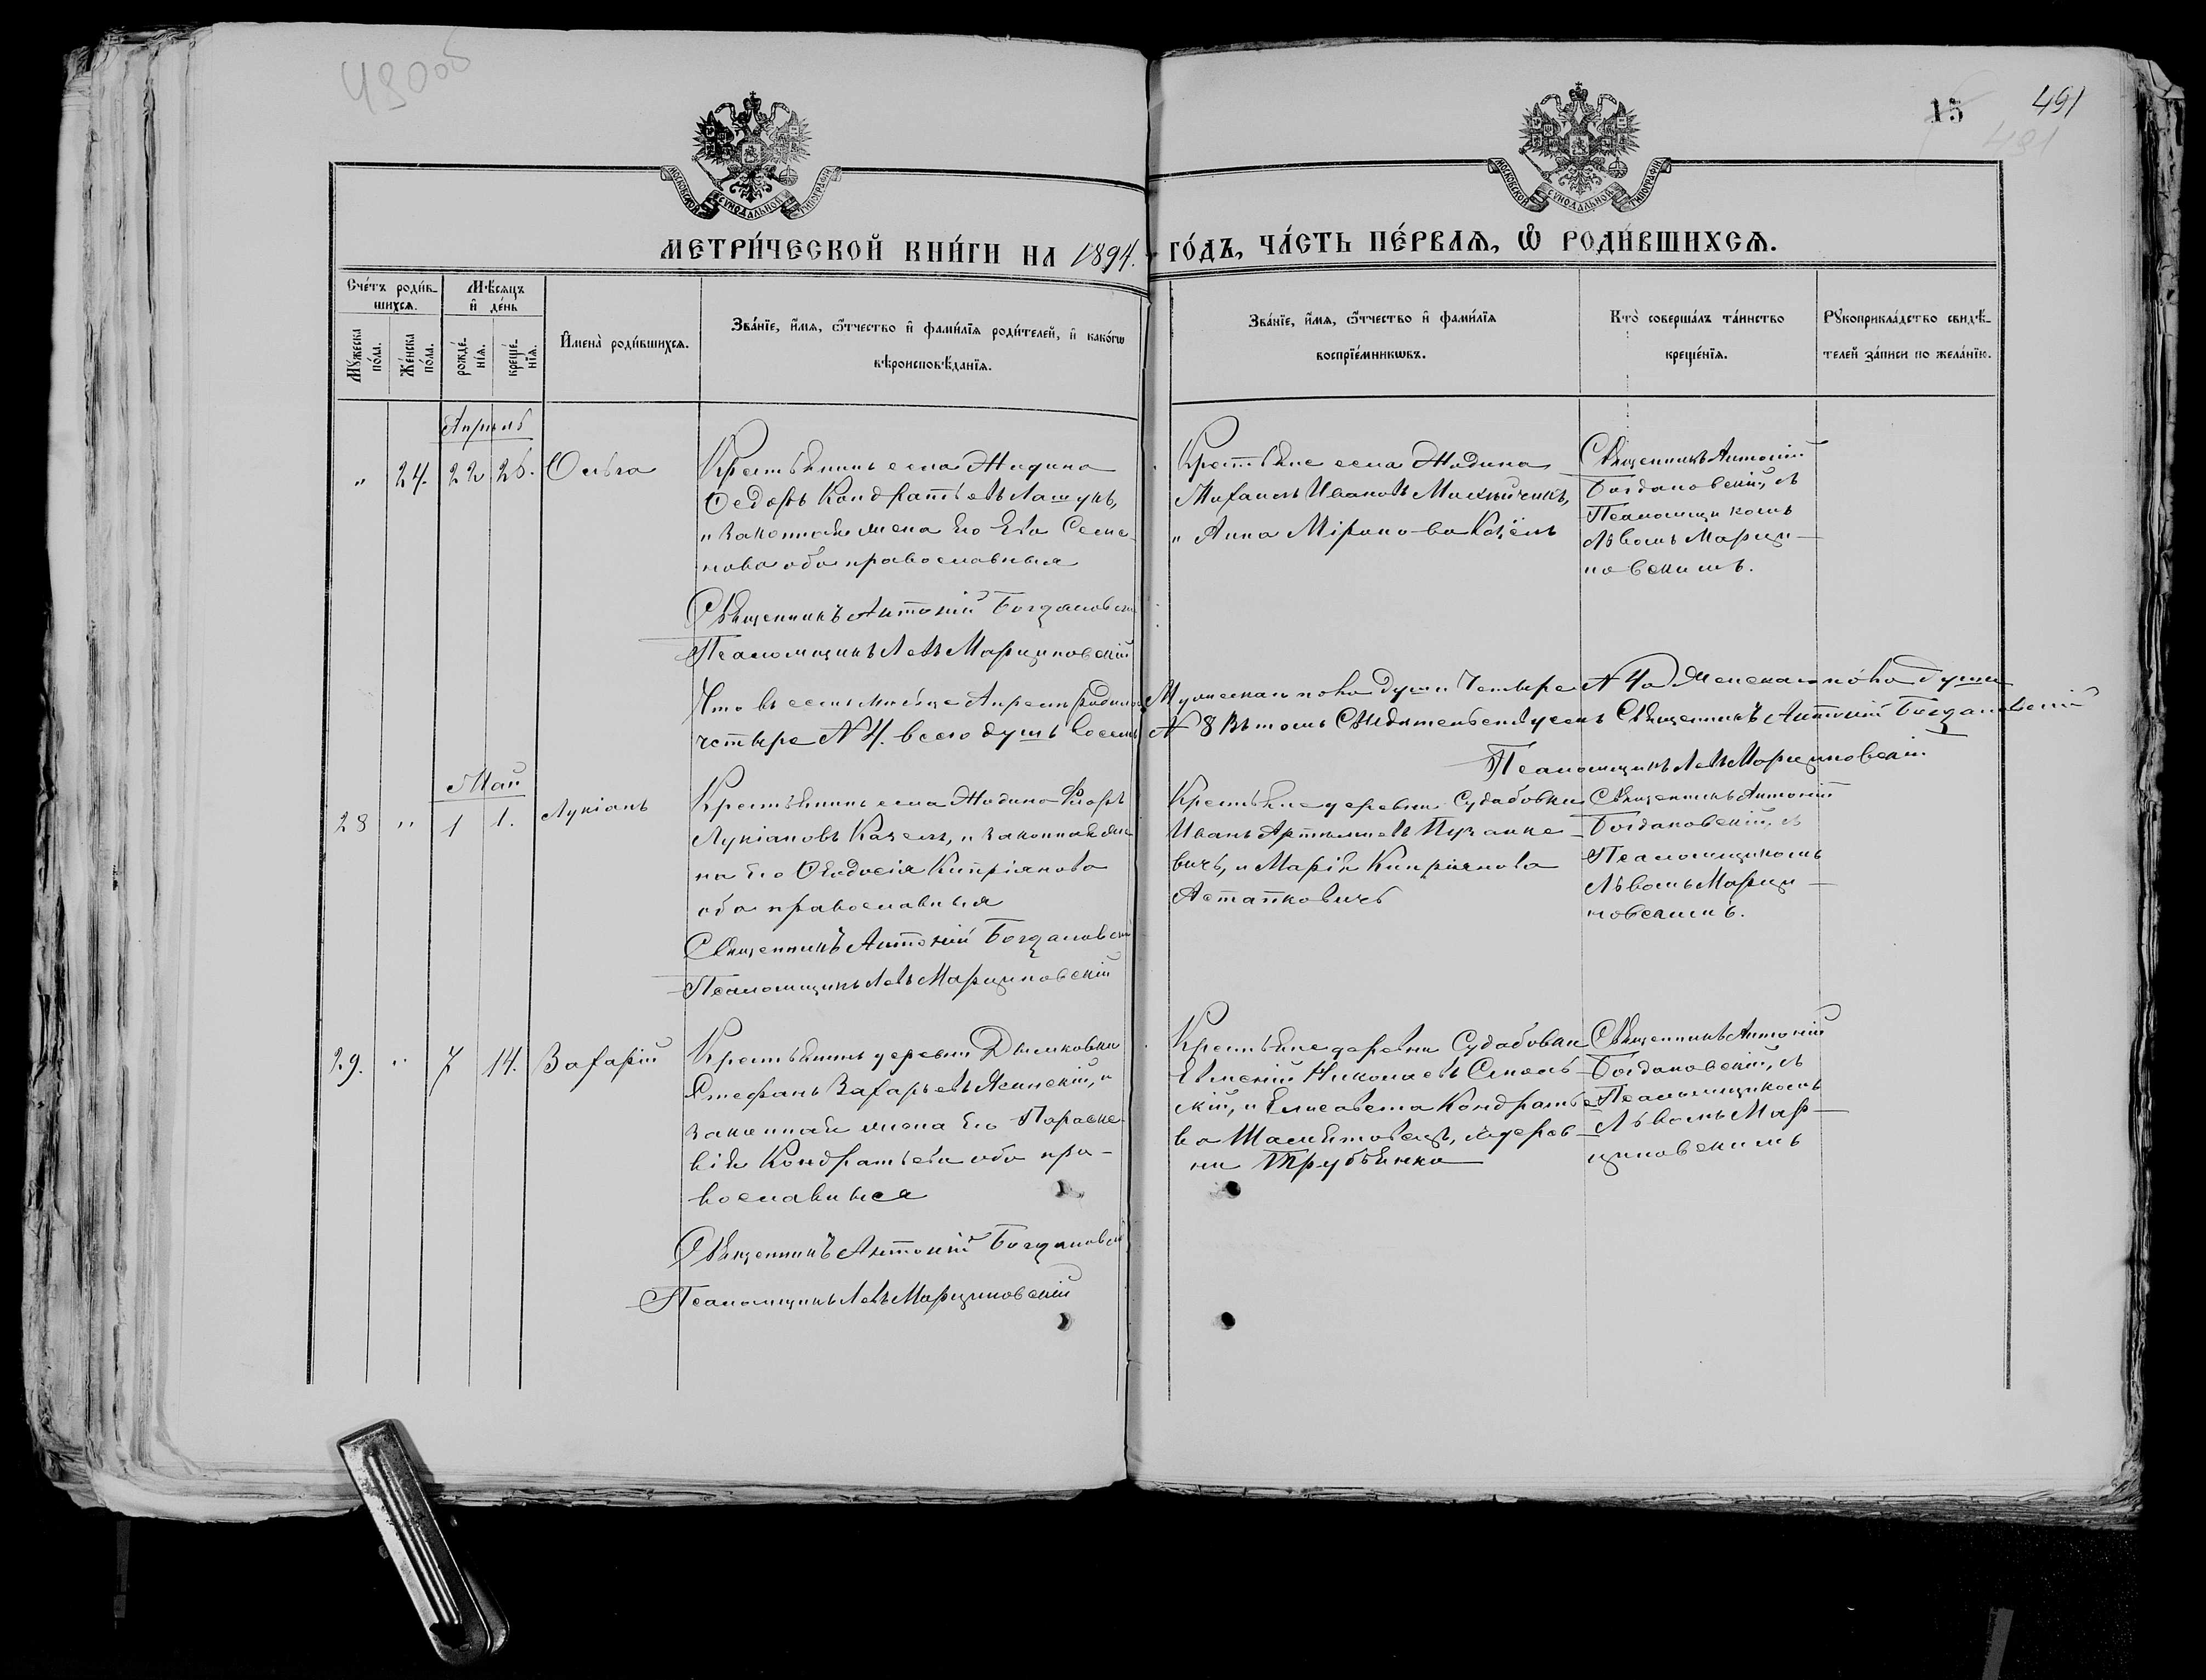 490об
15 491
491
МОСКОВСКОЙ СѴНОДАЛЬНОЙ ТИПОГРАФІИ
МОСКОВСКОЙ СѴНОДАЛЬНОЙ ТИПОГРАФІИ
МЕТРИ́ЧЕСКОЙ КНИ́ГИ НА 1894. ГО́ДЪ, ЧА́СТЬ ПЕ́РВАЯ, Ѽ РОДИ́ВШИХСЯ.
Сче́тъ роди́в-
шихся.
Мѣ́сяцъ
и҆ де́нь
Мꙋ́жеска
по́ла.
Же́нска
по́ла.
рожде́-
нїя.
креще́-
нїя.
И҆мена̀ роди́вшихся.
Зва́нїе, и҆́мя, ѻ҆́тчество и҆ фами́лїя роди́телей, и҆ како́гѡ
вѣроисповѣ́данїя.
Зва́нїе, и҆́мя, ѻ҆́тчество и҆ фами́лїя
воспрїе́мникѡвъ.
Кто̀ соверша́лъ та́инство
креще́нїя.
Рꙋкоприкла́дство свидѣ́-
телей за́писи по жела́нїю.
Апрель
" 24. 22 26. Ольга
Крестьянинъ села Жидина
Ѳедоръ Кондратьевъ Лашукъ,
и законная жена его Ева Семе-
нова оба православныя
Священникъ Антоній Богдановскій
Псаломщикъ Левъ Марциновскій
Крестьяне села Жидина
Михаилъ Ивановъ
и Анна Міронова Козелъ
Священникъ Антоній
Богдановскій, съ
Псаломщикомъ
Львомъ Марци-
новскимъ.
Что въ семъ мѣсяце Апреле родилось Мужеска пола душъ Четыре № 4 а Женскаго пола душъ
четыре № 4. всего душъ восемь № 8 въ томъ Свидѣтельствуемъ Священникъ Антоній Богдановскій
Псаломщикъ Левъ Марциновскій
Май
28 " 1 1. Лукіанъ
Крестьянинъ села Жидина Флоръ
Лукіановъ Казелъ, и законная же-
на его Ѳеодосія Кипріянова
оба православныя
Священникъ Антоній Богдановскій
Псаломщикъ Левъ Марциновскій
Крестьяне деревни Судабовки
Иванъ
вичъ, и Марія Кипріянова
Астапковичъ
Священникъ Антоній
Богдановскій, съ
Псаломщикомъ
Львомъ Марци-
новскимъ.
29. " 7 14. Захарій
Крестьянинъ деревни Дымковки
Стефанъ Захарьевъ Ясинскій, и
законная жена его Параске-
вія Кондратьева оба пра-
вославныя
Священникъ Антоній Богдановскій
Псаломщикъ Левъ Марциновскій
Крестьяне деревни Судабовки
Николаевъ
скій, и Елисавета Кондратье-
ва деров-
ни Трубянка
Священникъ Антоній
Богдановскій, съ
Псаломщикомъ
Львомъ Мар-
циновскимъ